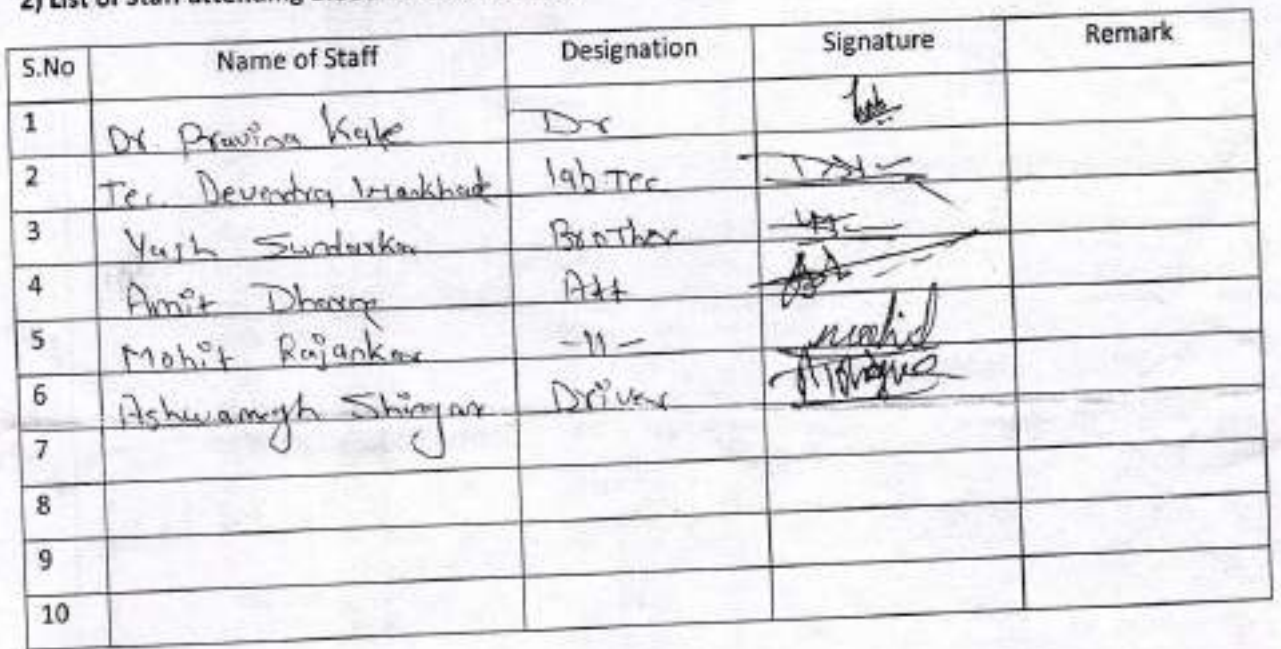 2) List of Staff attending
S.No Name of Staff Designation Signature Remark
1 Dr Pravina Kale Dr
2 Tec. Devendra lab Tec
3 Yash Brother
4 Amit Att
5 Mohit Rajankar -11-
6 Ashwamegh Shingar Driver
7
8
9
10